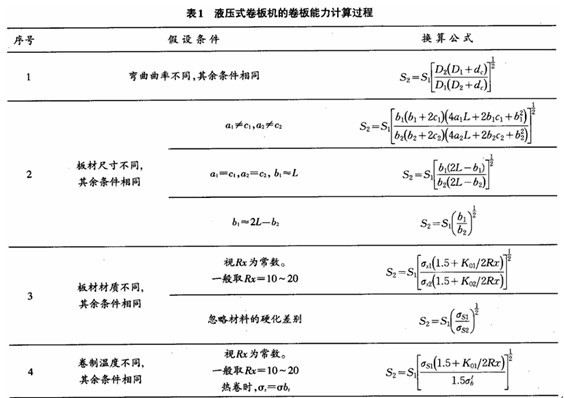 表1 液压式卷板机的卷板能力计算过程
序号 假设条件 换算公式
1 弯曲曲率不同,其余条件相同 S₂=S₁[D₂(D₁+d_c)/D₁(D₂+d_c)]^½
2 板材尺寸不同,其余条件相同
a₁≠c₁,a₂≠c₂ S₂=S₁[b₁(b₁+2c₁)(4a₁L+2b₁c₁+b₁²)/b₂(b₂+2c₂)(4a₂L+2b₂c₂+b₂²)]^½
a₁=c₁,a₂=c₂, b₁≈L S₂=S₁[b₁(2L−b₁)/b₂(2L−b₂)]^½
b₁≈2L−b₂ S₂=S₁(b₁/b₂)^½
3 板材材质不同,其余条件相同
视Rx为常数。
一般取Rx=10~20 S₂=S₁[σ_s1(1.5+K₀₁/2Rx)/σ_s2(1.5+K₀₂/2Rx)]^½
忽略材料的硬化差别 S₂=S₁(σ_S1/σ_S2)^½
4 卷制温度不同,其余条件相同
视Rx为常数。
一般取Rx=10~20
热卷时,σ_s=σb_t S₂=S₁[σ_S1(1.5+K₀₁/2Rx)/1.5σ_b^t]^½